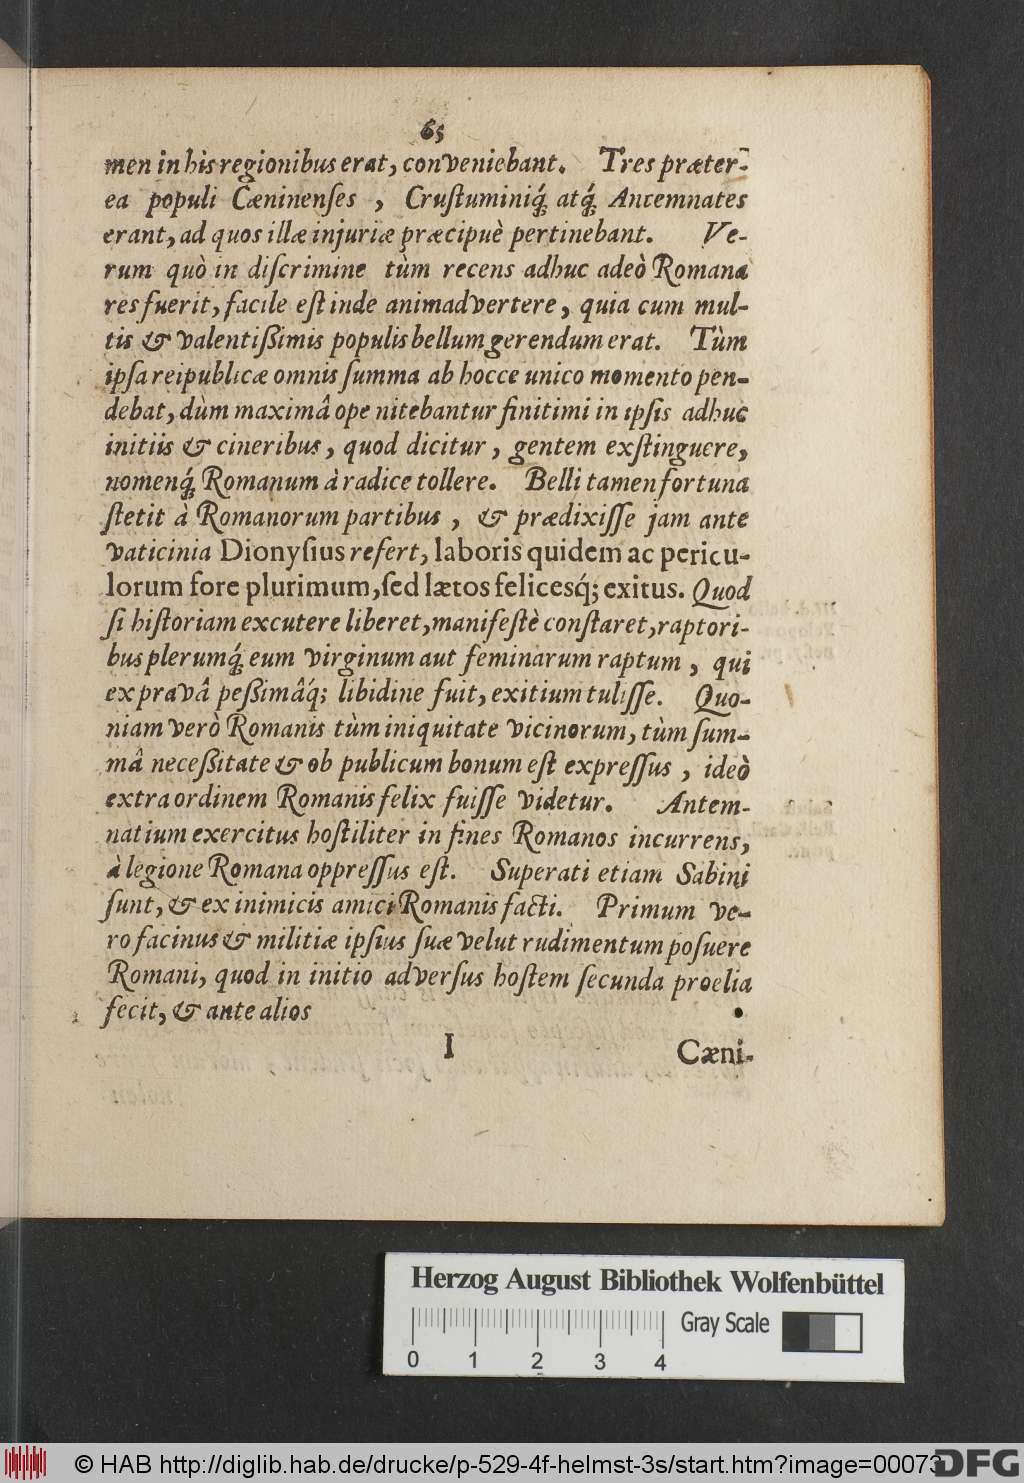 65
men in his regionibus erat, conveniebant. Tres præter-
ea populi Cæninenſes , Cruſtuminiq́; atq́; Antemnates
erant, ad quos illæ injuriæ præcipuè pertinebant. Ve-
rum quò in diſcrimine tùm recens adhuc adeò Romana
res fuerit, facile eſt inde animadvertere, quia cum mul-
tis & valentißimis populis bellum gerendum erat. Tùm
ipſa reipublicæ omnis ſumma ab hocce unico momento pen-
debat, dùm maximâ ope nitebantur finitimi in ipſis adhuc
initiis & cineribus, quod dicitur, gentem exſtinguere,
nomenq́; Romanum à radice tollere. Belli tamen fortuna
ſtetit à Romanorum partibus, & prædixiſſe jam ante
vaticinia Dionyſius refert, laboris quidem ac pericu-
lorum fore plurimum, ſed lætos felicesq́; exitus. Quod
ſi hiſtoriam excutere liberet, manifeſtè conſtaret, raptori-
bus plerumq́; eum virginum aut feminarum raptum, qui
ex pravâ peßimâq́; libidine fuit, exitium tuliſſe. Quo-
niam verò Romanis tùm iniquitate vicinorum, tùm ſum-
mâ neceßitate & ob publicum bonum eſt expreſſus, ideò
extra ordinem Romanis felix fuiſſe videtur. Antem-
natium exercitus hoſtiliter in fines Romanos incurrens,
à legione Romana oppreſſus eſt. Superati etiam Sabini
ſunt, & ex inimicis amici Romanis facti. Primum ve-
ro facinus & militiæ ipſius ſuæ velut rudimentum poſuere
Romani, quod in initio adverſus hoſtem ſecunda proelia
fecit, & ante alios
I Cæni-
Herzog August Bibliothek Wolfenbüttel
Gray Scale
0 1 2 3 4
© HAB http://diglib.hab.de/drucke/p-529-4f-helmst-3s/start.htm?image=00073
DFG